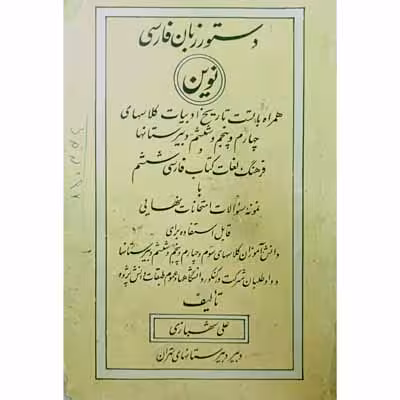 دستور زبان فارسی
نوین
همراه با لیست تاریخ ادبیات کلاسهای
چهارم و پنجم و ششم دبیرستانها
و
فرهنگ لغات کتاب فارسی ششم
با
نمونه سئوالات امتحانات نهایی
قابل استفاده برای
دانش‌آموزان کلاسهای سوم و چهارم و پنجم و ششم دبیرستانها
و داوطلبان شرکت در کنکور دانشگاهها و عموم طبقات دانش پژوه
تألیف
علی شهبازی
دبیر دبیرستانهای تهران